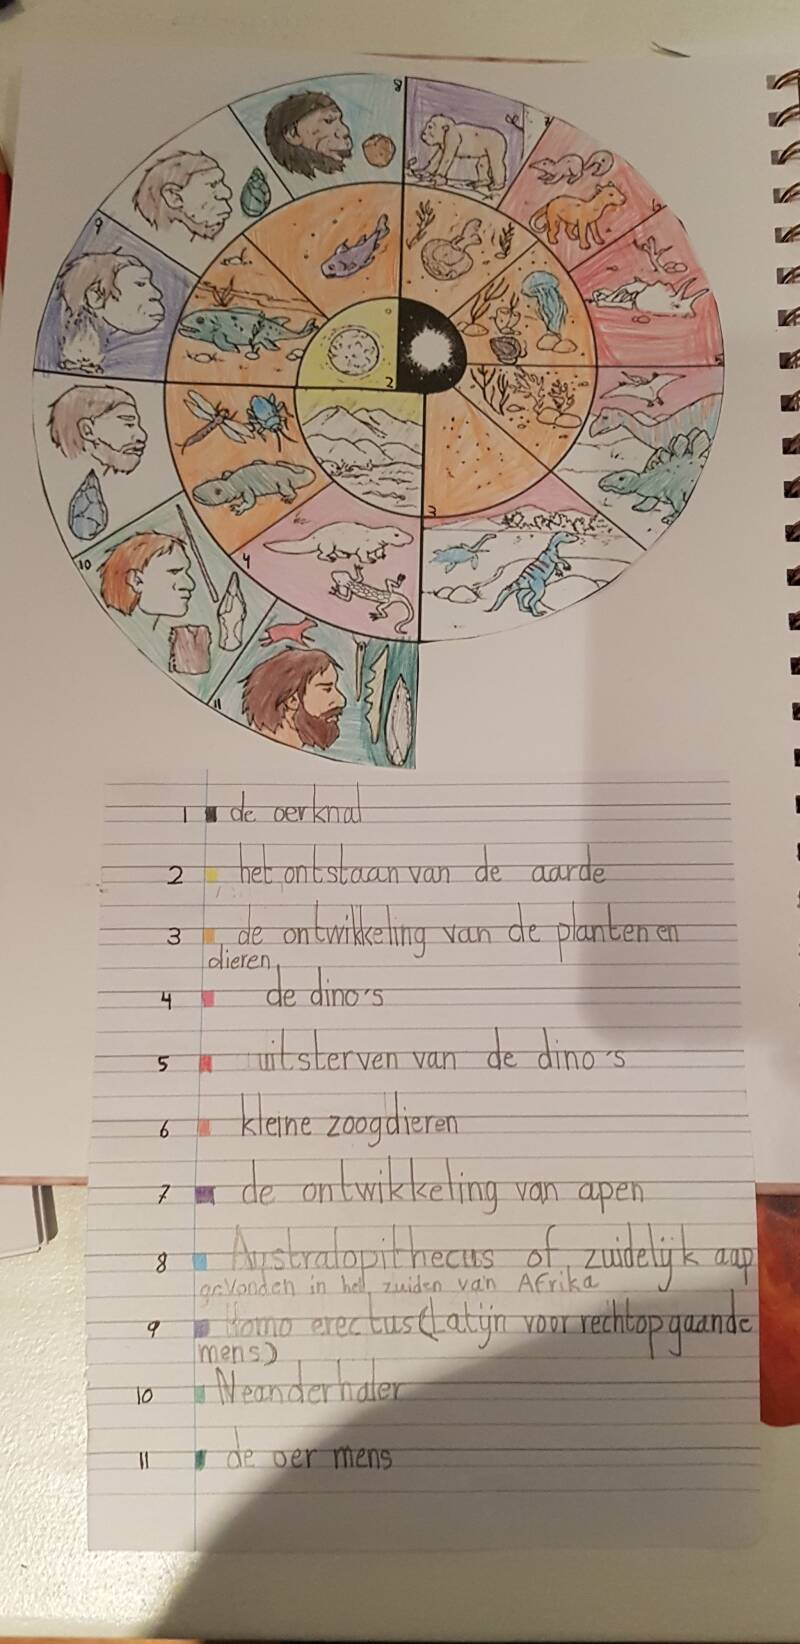 8
7
6
9
1
2
5
3
4
10
11
1 de oerknal
2 het ontstaan van de aarde
3 de ontwikkeling van de planten en
dieren
4 de dino's
5 uitsterven van de dino's
6 kleine zoogdieren
7 de ontwikkeling van apen
8 Australopithecus of zuidelijk aap
gevonden in het zuiden van Afrika
9 Homo erectus (Latijn voor rechtop gaande
mens)
10 Neanderhaler
11 de oer mens